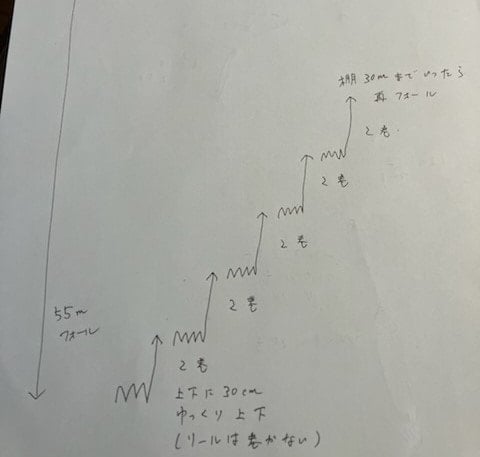 棚30mまでいったら
再フォール
2巻
2巻
2巻
2巻
2巻
55m
フォール
上下に30cm
ゆっくり上下
(リールは巻かない)